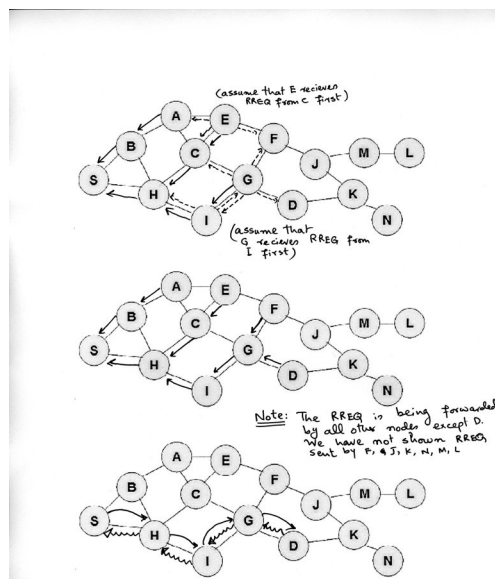 (assume that E recieves
RREQ from C first)
A
E
B
F
C
M
L
J
S
G
H
K
D
I
N
(assume that
G recieves RREG from
I first)
A
E
B
F
C
M
L
J
S
G
H
K
D
I
N
Note: The RREQ is being forwarded
by all other nodes except D.
We have not shown RREQ
sent by F, & J, K, N, M, L
A
E
B
F
C
M
L
J
S
G
H
K
D
I
N